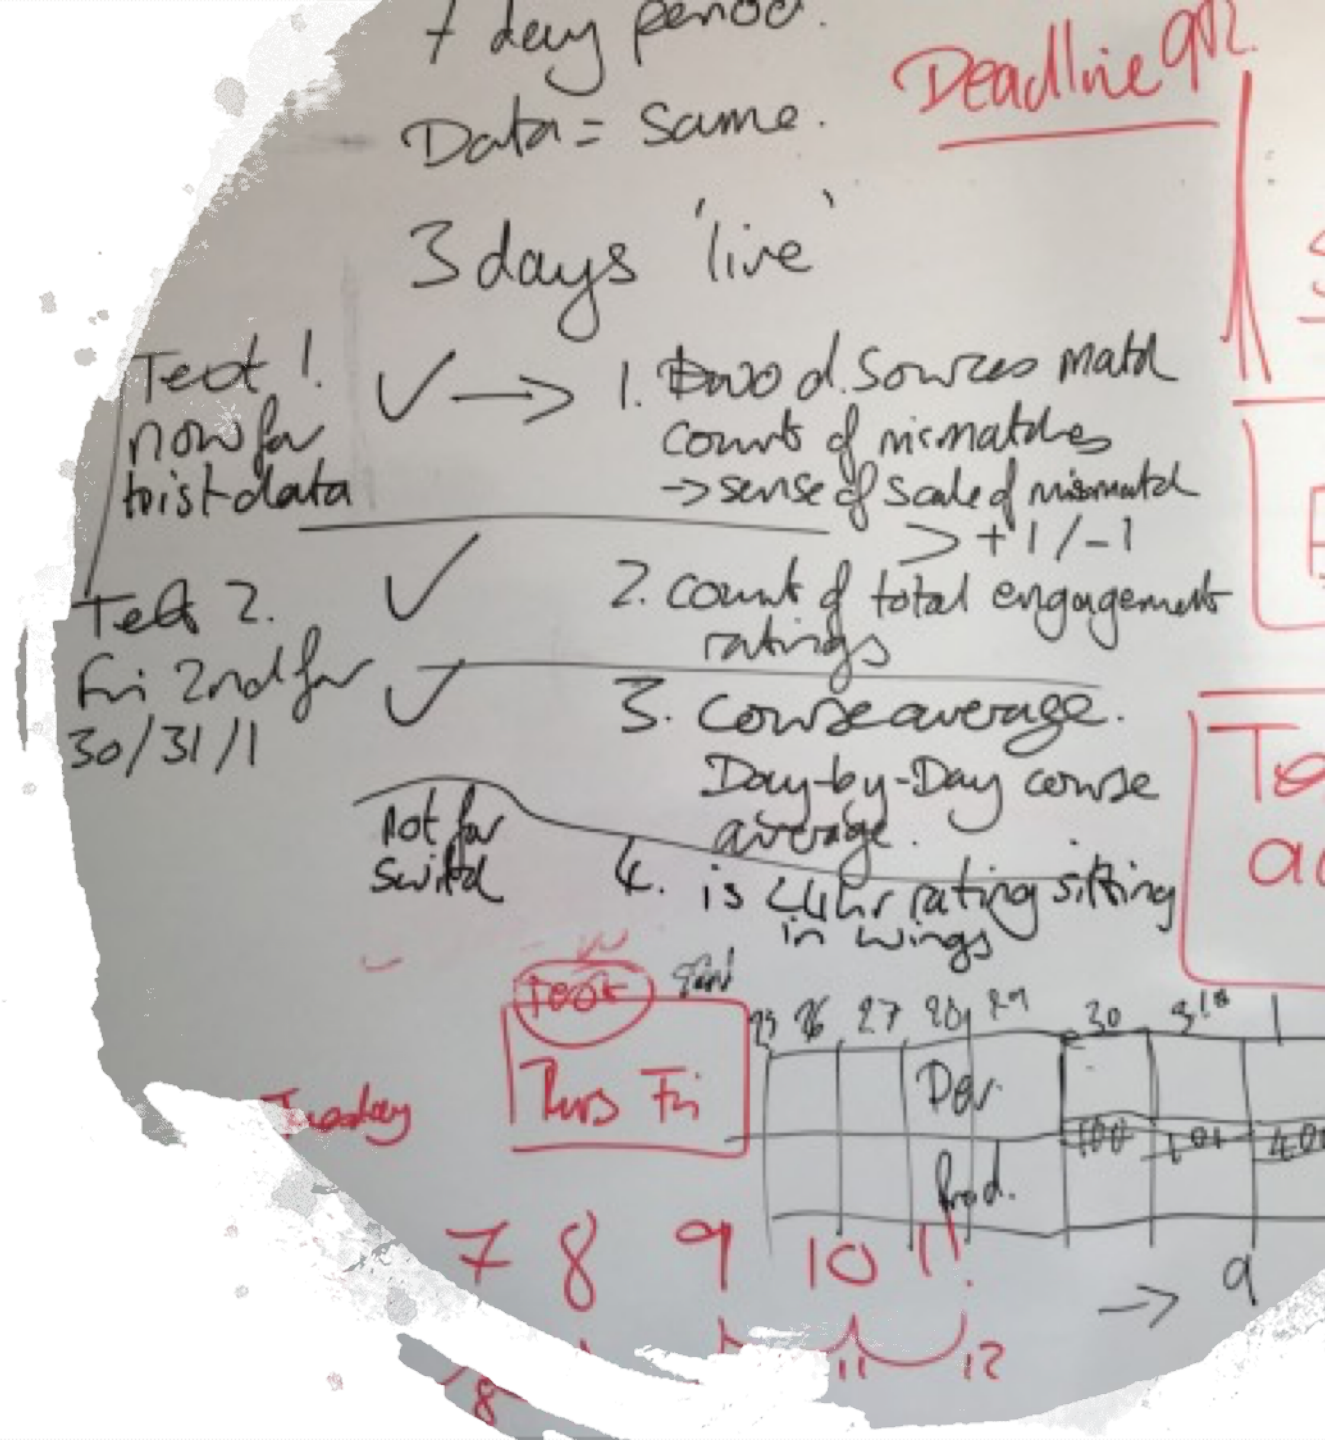 7 day period.
Deadline 9th.
Data = Same.
3 days 'live'
Test 1.
now for
hist data
✓ → 1. two d. Sources match
counts of mismatches
→ sense of scale of mismatch
> +1/-1
Test 2.
Fri 2nd for
30/31/1
✓ 2. count of total engagement
ratings
✓ 3. Course average.
Day-by-Day course
average.
not for
switch
4. is 44hr rating sitting
in wings
Test
Thurs Fri
Tuesday
25 26 27 28 29 30 31st 1
Dev.
100 101 400
Prod.
7 8 9 10 11
→ 9
11 12
8